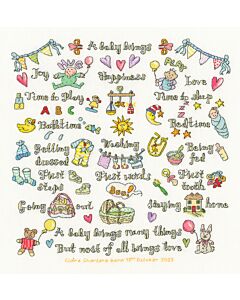 A baby brings
Joy Happiness Love
PLAY
Time to Play Time to sleep
A B
Bathtime Bedtime
Getting dressed Washing Being fed
First steps First words First tooth
Going out Staying home
A baby brings many things
But most of all brings love